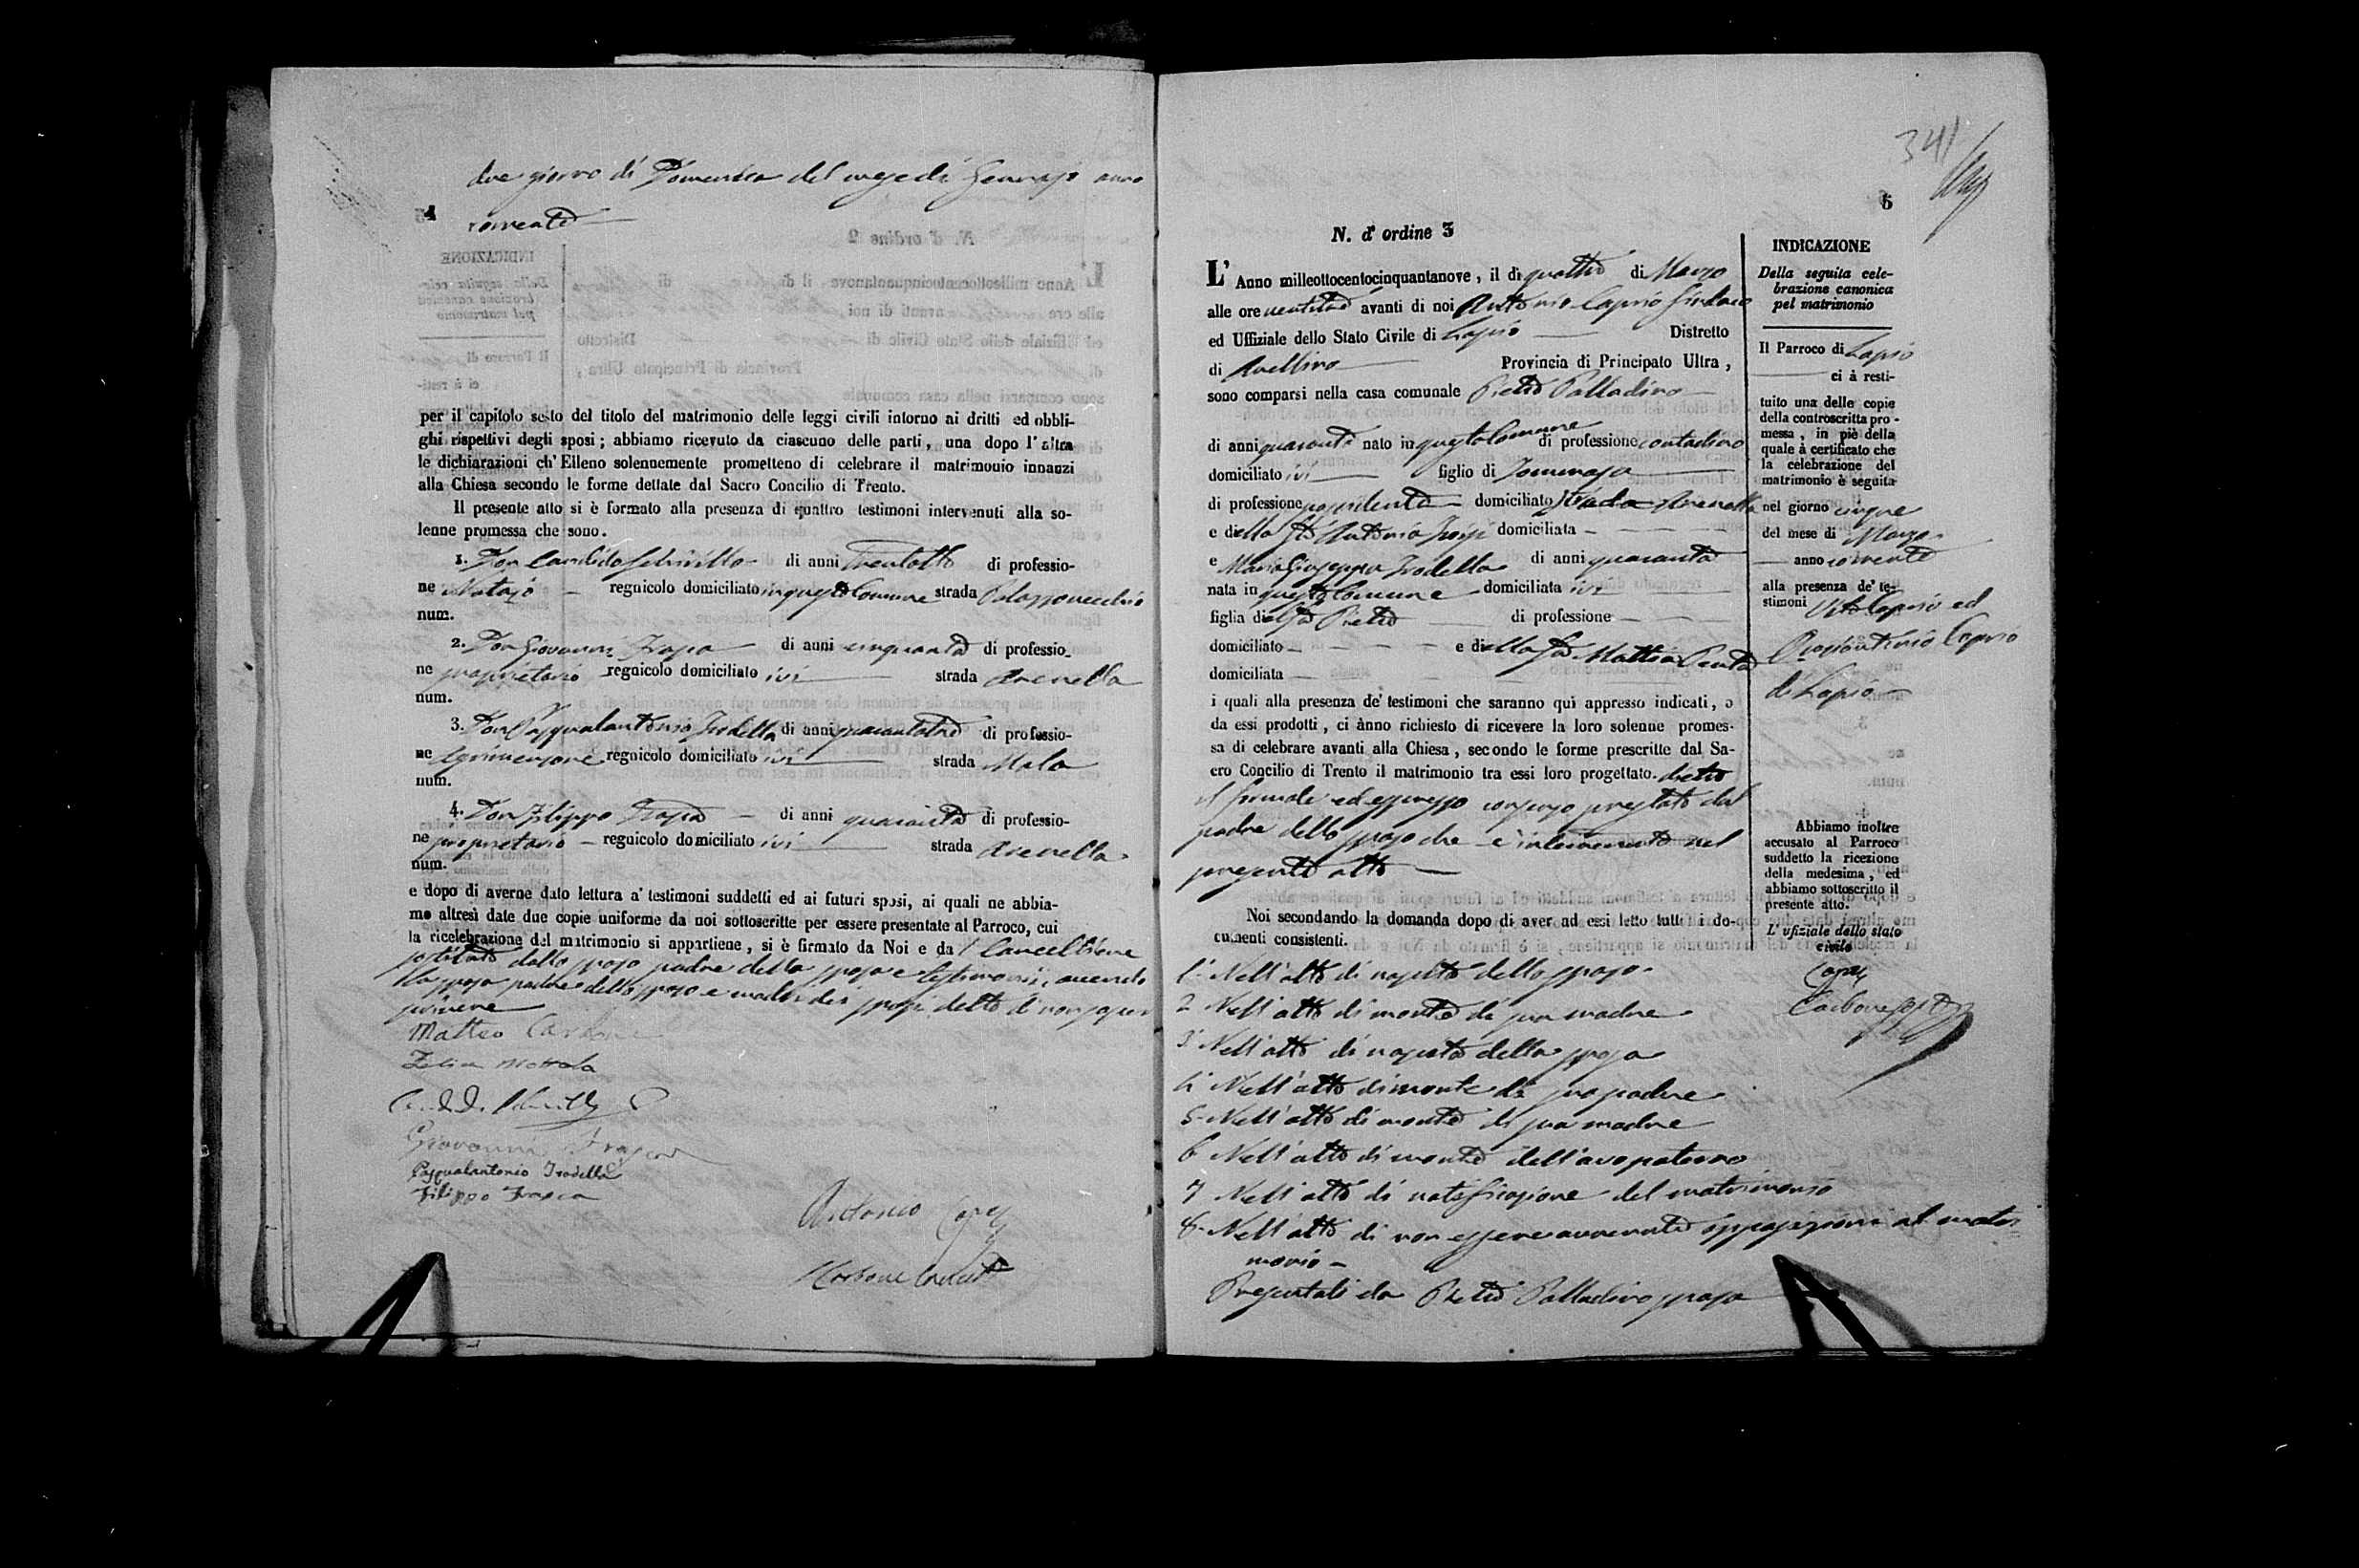 due giorno di Domenica del mese di Gennajo anno
corrente
4
per il capitolo sesto del titolo del matrimonio delle leggi civili intorno ai dritti ed obbli-
ghi rispettivi degli sposi; abbiamo ricevuto da ciascuno delle parti, una dopo l'altra
le dichiarazioni ch'Elleno solennemente promettono di celebrare il matrimonio innanzi
alla Chiesa secondo le forme dettate dal Sacro Concilio di Trento.
Il presente atto si è formato alla presenza di quattro testimoni intervenuti alla so-
lenne promessa che sono.
1. Don Candido di anni Trentotto di professio-
ne Notajo regnicolo domiciliato in questo Comune strada Palazzovecchio
num.
2. Don Giovanni di anni cinquanta di professio-
ne proprietario regnicolo domiciliato ivi strada Arenella
num.
3. Don Pasqualantonio Trodella di anni quarantatre di professio-
ne Agrimensore regnicolo domiciliato ivi strada Mala
num.
4. Don Filippo di anni quaranta di professio-
ne proprietario regnicolo domiciliato ivi strada Arenella
num.
e dopo di averne dato lettura a' testimoni suddetti ed ai futuri sposi, ai quali ne abbia-
mo altresì date due copie uniforme da noi sottoscritte per essere presentate al Parroco, cui
la ricelebrazione del matrimonio si appartiene, si è firmato da Noi e da l Cancelliere
sostituto dallo sposo padre della sposa e testimoni, avendo
la sposa padre dello sposo e madri dei sposi detto di non saper
scrivere
Matteo Carbone
Felice Mottola
Giovanni
Pasqualantonio Trodella
Filippo
Antonio
Carbone
341
5
N. d' ordine 3
L' Anno milleottocentocinquantanove, il dì quattro di Marzo
alle ore ventitre avanti di noi Antonio Caprio Sindaco
ed Uffiziale dello Stato Civile di Lapio Distretto
di Avellino Provincia di Principato Ultra,
sono comparsi nella casa comunale Pietro Palladino
di anni quaranta nato in questo Comune di professione contadino
domiciliato ivi figlio di Tommaso
di professione possidente domiciliato strada Arenella
e della fu Antonia domiciliata
e Maria Giuseppa Trodella di anni quaranta
nata in questo Comune domiciliata ivi
figlia del fu Pietro di professione
domiciliato e della fu Mattia Penta
domiciliata
i quali alla presenza de' testimoni che saranno qui appresso indicati, e
da essi prodotti, ci ànno richiesto di ricevere la loro solenne promes-
sa di celebrare avanti alla Chiesa, secondo le forme prescritte dal Sa-
cro Concilio di Trento il matrimonio tra essi loro progettato. dietro
il formale ed espresso consenso prestato dal
padre dello sposo che è intervenuto nel
presente atto
Noi secondando la domanda dopo di aver ad essi letto tutti i do-
cumenti consistenti.
1. Nell'atto di nascita dello sposo
2 Nell'atto di morte di sua madre
3. Nell'atto di nascita della sposa
4. Nell'atto di morte di suo padre
5. Nell'atto di morte di sua madre
6 Nell'atto di morte dell'avo paterno
7 Nell'atto di notificazione del matrimonio
8. Nell'atto di non essere avvenuta opposizione al matri
monio
Presentati da Pietro Palladino sposo
INDICAZIONE
Della seguita cele-
brazione canonica
pel matrimonio
Il Parroco di Lapio
ci à resti-
tuito una delle copie
della controscritta pro-
messa, in piè della
quale à certificato che
la celebrazione del
matrimonio è seguita
nel giorno cinque
del mese di Marzo
anno corrente
alla presenza de' te-
stimoni Vito Caprio ed
Caprio
di Lapio
Abbiamo inoltre
accusato al Parroco
suddetto la ricezione
della medesima, ed
abbiamo sottoscritto il
presente atto.
L'ufiziale dello stato
civile
Carbone